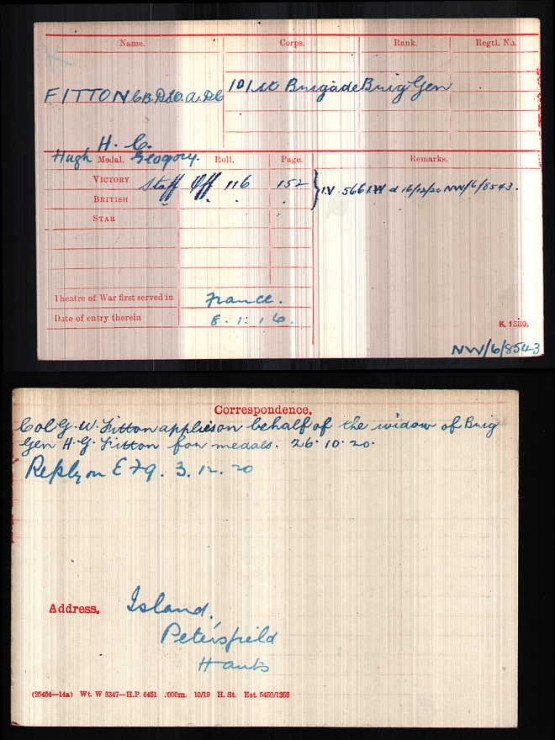 Name. Corps. Rank. Regtl. No.
FITTON CB DSO. A.D.C 101st Brigade Brig Gen
H. G.
Hugh Gregory.
Medal. Roll. Page. Remarks.
VICTORY Staff Off 116 152 } IV. 566 KW d 16/12/20 NW/6/8543.
BRITISH " " "
STAR
Theatre of War first served in France.
Date of entry therein 8. 1. 16.
K. 1380.
NW/6/8543
Correspondence.
Col G. W. Fitton applies on behalf of the widow of Brig
Gen H. G. Fitton for medals. 26. 10. 20.
Reply on E 79. 3. 12. 20
Address. Island,
Petersfield
Hants
(25454—14a) Wt. W 3347—H.P. 6451 500m. 10/19 H. St. Est. 5450/1256